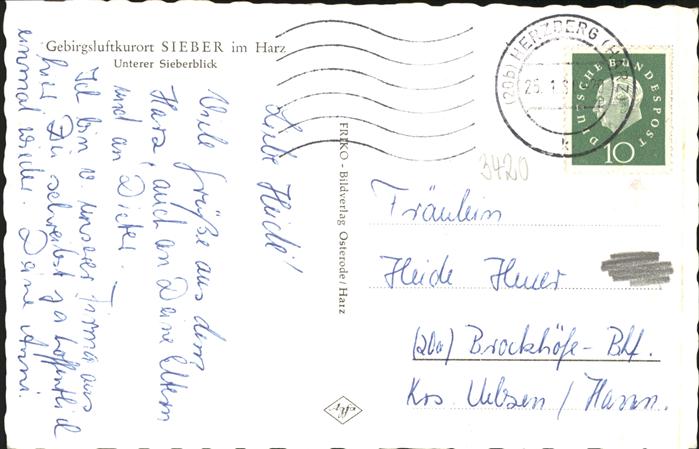 Gebirgsluftkurort SIEBER im Harz
Unterer Sieberblick
Liebe Heide!
Viele Grüße aus dem
Harz, auch an Deine Eltern
und an Dieter.
Ich bin v. unserer Firma aus
hier. Du schreibst ja hoffentlich
einmal wieder. Deine Anni.
FRIKO - Bildverlag Osterode/Harz
(20b) HERZBERG (HARZ)
25.1.
k
DEUTSCHE BUNDESPOST
10
3420
Fräulein
Heide Heuer
(20a) Brockhöfe-Bhf.
Krs Uelzen / Hann.